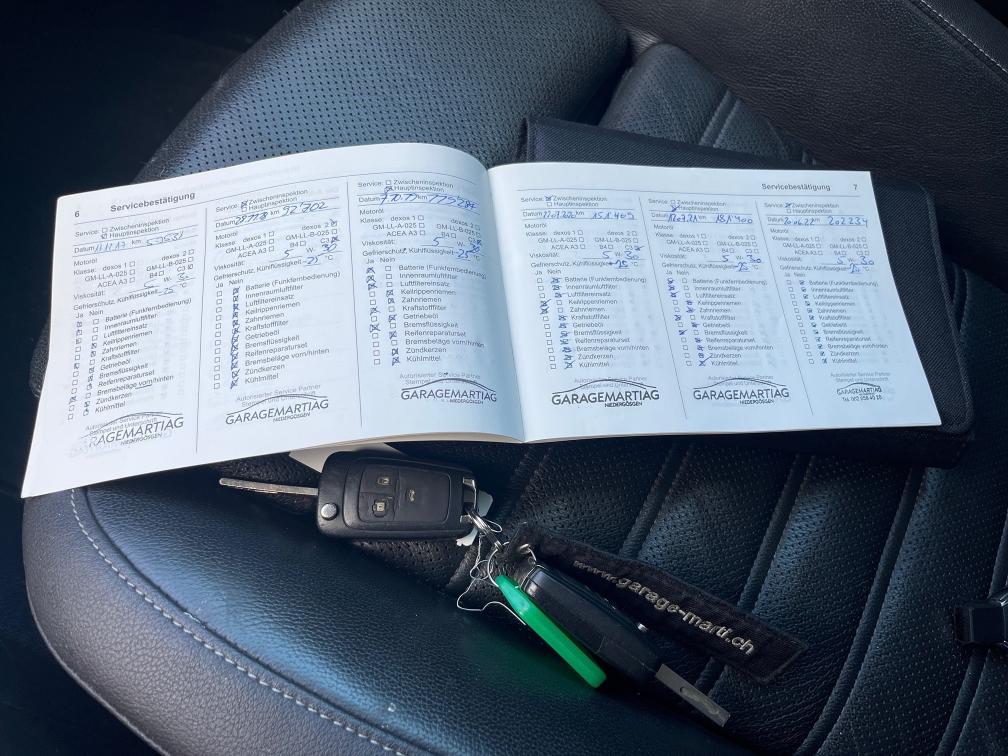 6 Servicebestätigung
Service: Zwischeninspektion
Hauptinspektion
Datum 11.11.17 km
Motoröl
Klasse: dexos 1 dexos 2
GM-LL-A-025 GM-LL-B-025
ACEA A3 B4 C3
Viskosität: 5 W- 30
Gefrierschutz, Kühlflüssigkeit -25 °C
Ja Nein
Batterie (Funkfernbedienung)
Innenraumluftfilter
Luftfiltereinsatz
Keilrippenriemen
Zahnriemen
Kraftstofffilter
Getriebeöl
Bremsflüssigkeit
Reifenreparaturset
Bremsbeläge vorn/hinten
Zündkerzen
Kühlmittel
Autorisierter Service Partner
Stempel und Unterschrift
GARAGEMARTIAG
NIEDERGÖSGEN
Service: Zwischeninspektion
Hauptinspektion
Datum km 92 702
Motoröl
Klasse: dexos 1 dexos 2
GM-LL-A-025 GM-LL-B-025
ACEA A3 B4 C3
Viskosität: 5 W-
Gefrierschutz, Kühlflüssigkeit -25 °C
Ja Nein
Batterie (Funkfernbedienung)
Innenraumluftfilter
Luftfiltereinsatz
Keilrippenriemen
Zahnriemen
Kraftstofffilter
Getriebeöl
Bremsflüssigkeit
Reifenreparaturset
Bremsbeläge vorn/hinten
Zündkerzen
Kühlmittel
Autorisierter Service Partner
GARAGEMARTIAG
NIEDERGÖSGEN
Service: Zwischeninspektion
Hauptinspektion
Datum 7.10.19 km
Motoröl
Klasse: dexos 1 dexos 2
GM-LL-A-025 GM-LL-B-025
ACEA A3 B4 C3
Viskosität: 5 W-
Gefrierschutz, Kühlflüssigkeit -25 °C
Ja Nein
Batterie (Funkfernbedienung)
Innenraumluftfilter
Luftfiltereinsatz
Keilrippenriemen
Zahnriemen
Kraftstofffilter
Getriebeöl
Bremsflüssigkeit
Reifenreparaturset
Bremsbeläge vorn/hinten
Zündkerzen
Kühlmittel
Autorisierter Service Partner
Stempel
GARAGEMARTIAG
NIEDERGÖSGEN
Servicebestätigung 7
Service: Zwischeninspektion
Hauptinspektion
Datum km 151 409
Motoröl
Klasse: dexos 1 dexos 2
GM-LL-A-025 GM-LL-B-025
ACEA A3 B4 C3
Viskosität: 5 W- 30
Gefrierschutz, Kühlflüssigkeit -25 °C
Ja Nein
Batterie (Funkfernbedienung)
Innenraumluftfilter
Luftfiltereinsatz
Keilrippenriemen
Zahnriemen
Kraftstofffilter
Getriebeöl
Bremsflüssigkeit
Reifenreparaturset
Bremsbeläge vorn/hinten
Zündkerzen
Kühlmittel
Autorisierter Service Partner
Stempel und Unterschrift
GARAGEMARTIAG
NIEDERGÖSGEN
Service: Zwischeninspektion
Hauptinspektion
Datum km 181 400
Motoröl
Klasse: dexos 1 dexos 2
GM-LL-A-025 GM-LL-B-025
ACEA A3 B4 C3
Viskosität: 5 W- 30
Gefrierschutz, Kühlflüssigkeit -25 °C
Ja Nein
Batterie (Funkfernbedienung)
Innenraumluftfilter
Luftfiltereinsatz
Keilrippenriemen
Zahnriemen
Kraftstofffilter
Getriebeöl
Bremsflüssigkeit
Reifenreparaturset
Bremsbeläge vorn/hinten
Zündkerzen
Kühlmittel
Autorisierter Service Partner
Stempel und Unterschrift
GARAGEMARTIAG
NIEDERGÖSGEN
Service: Zwischeninspektion
Hauptinspektion
Datum 20.6.22 km 202 234
Motoröl
Klasse: dexos 1 dexos 2
GM-LL-A-025 GM-LL-B-025
ACEA A3 B4 C3
Viskosität: 5 W- 30
Gefrierschutz, Kühlflüssigkeit °C
Ja Nein
Batterie (Funkfernbedienung)
Innenraumluftfilter
Luftfiltereinsatz
Keilrippenriemen
Zahnriemen
Kraftstofffilter
Getriebeöl
Bremsflüssigkeit
Reifenreparaturset
Bremsbeläge vorn/hinten
Zündkerzen
Kühlmittel
Autorisierter Service Partner
Stempel und Unterschrift
GARAGEMARTIAG
www.garage-marti.ch